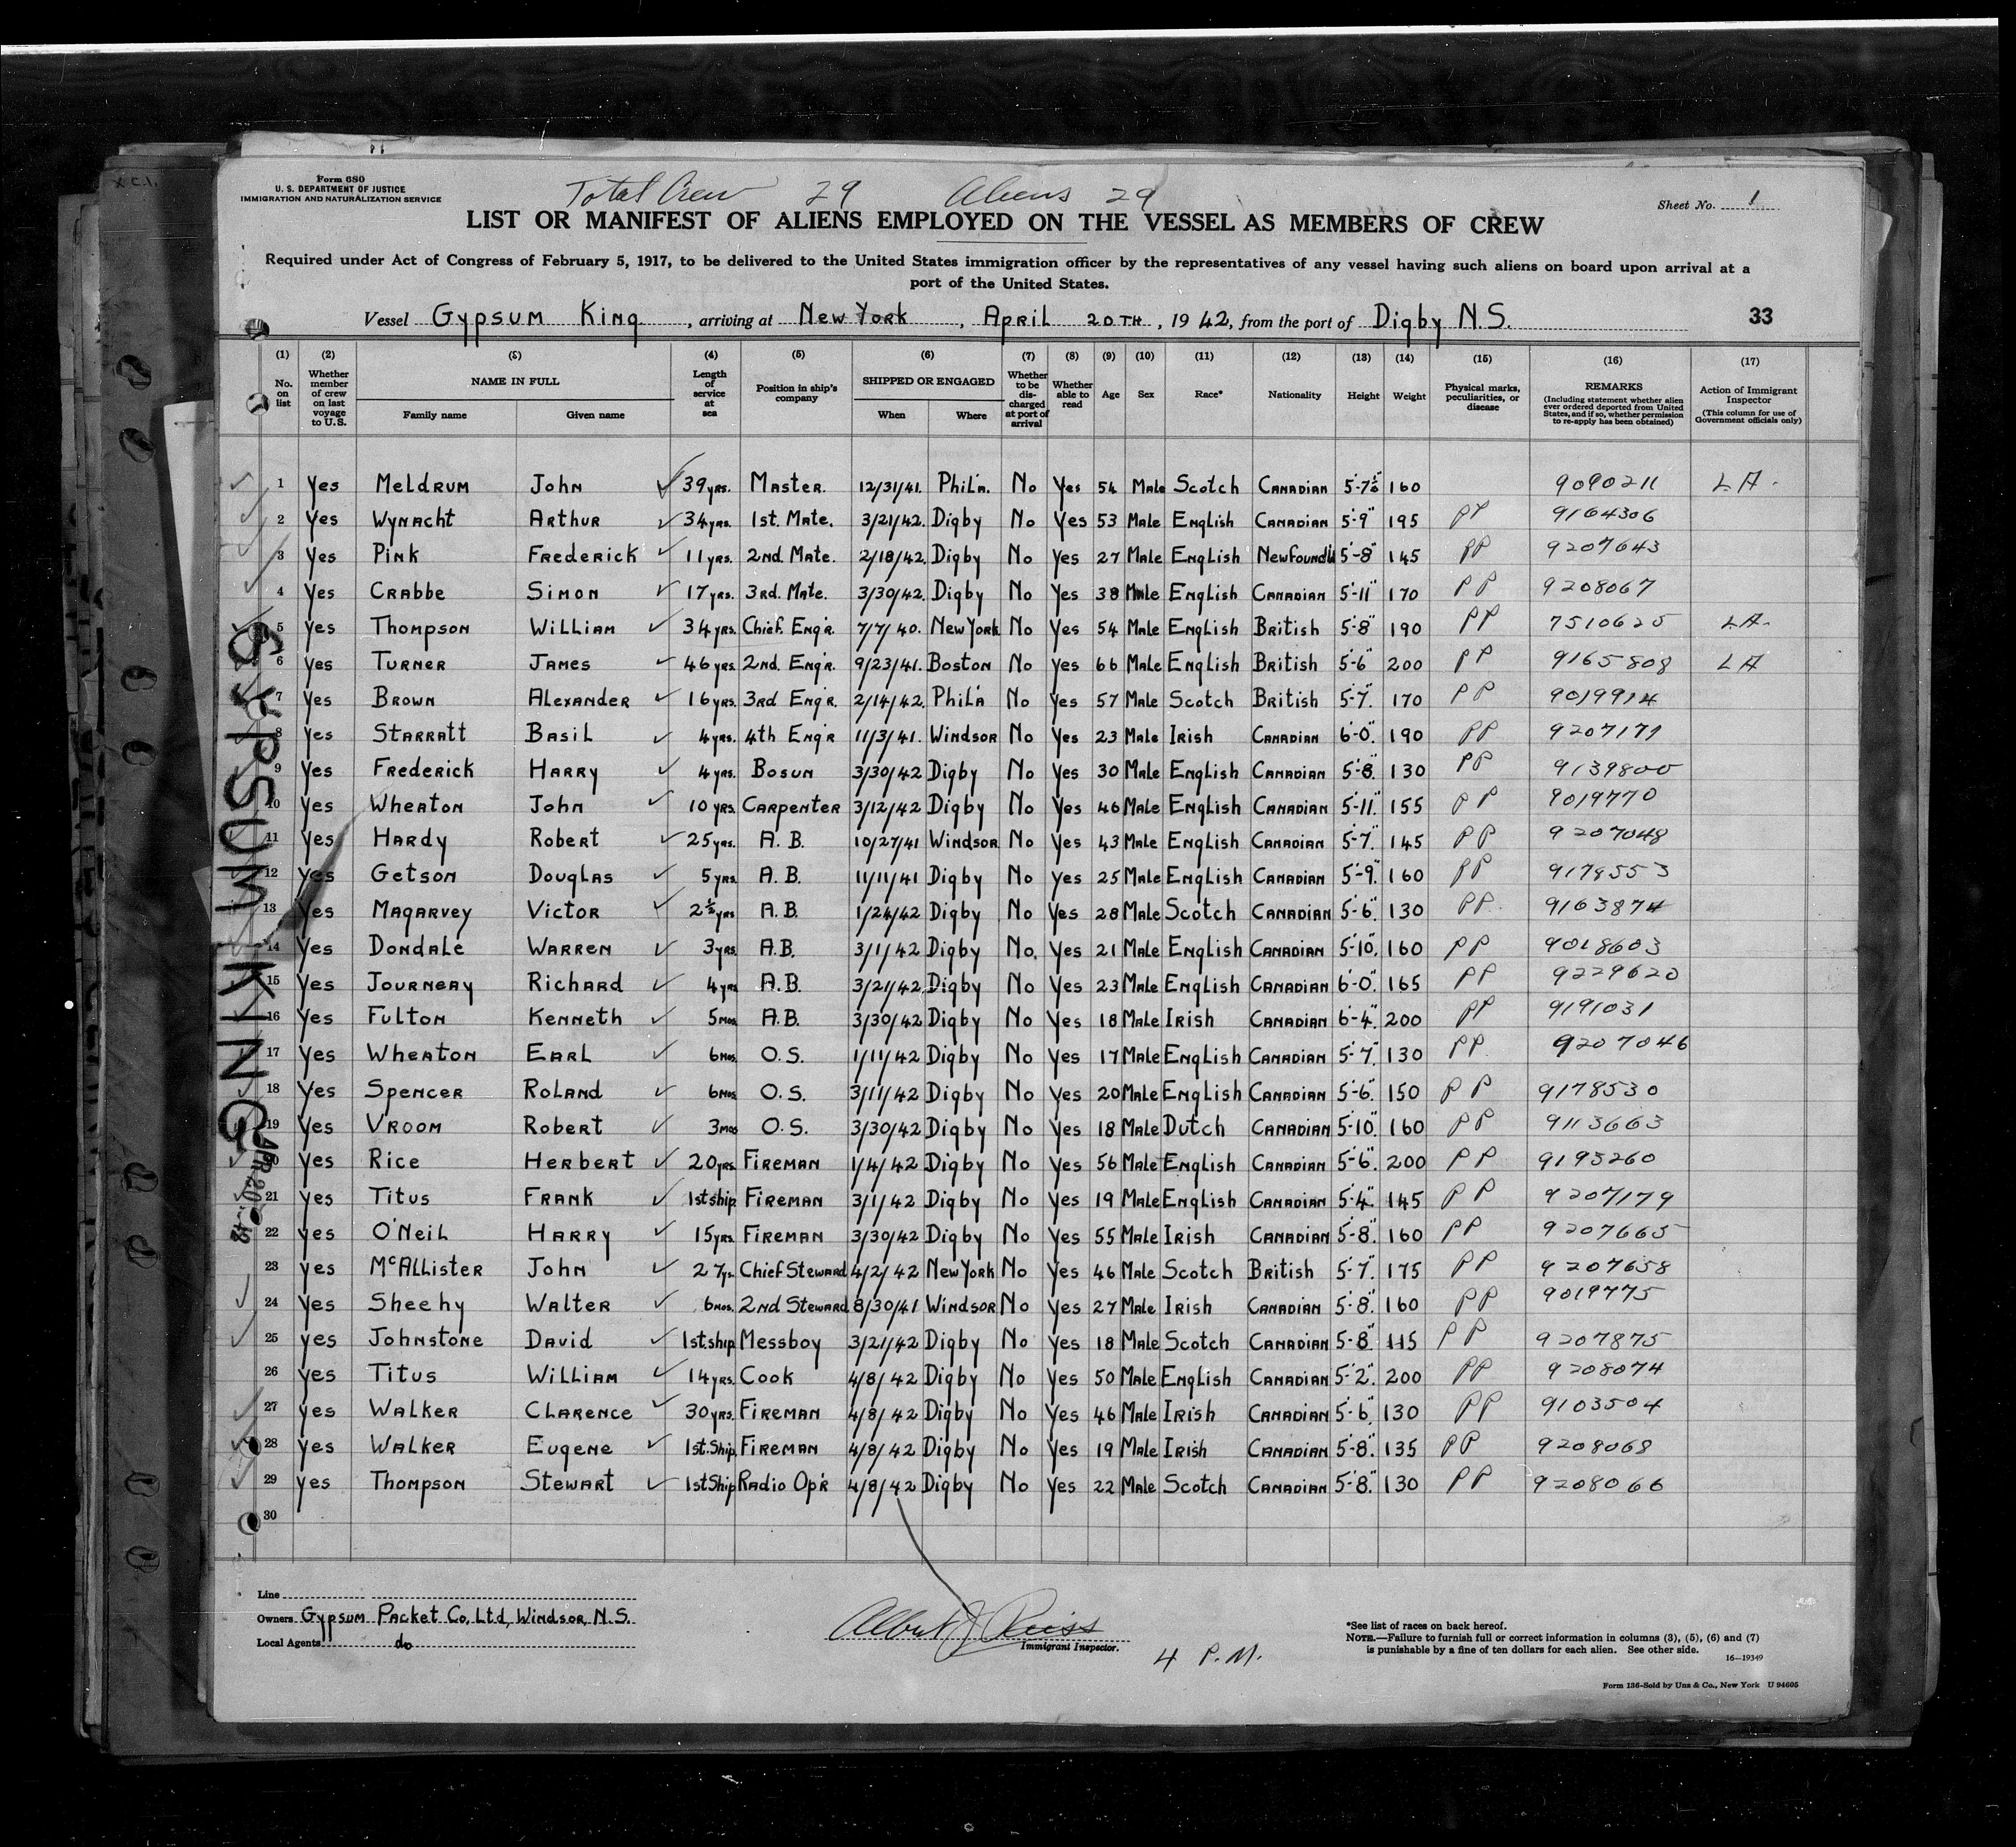 X C.1.
Form 680
U. S. DEPARTMENT OF JUSTICE
IMMIGRATION AND NATURALIZATION SERVICE
Total Crew 29 Aliens 29
Sheet No. 1
LIST OR MANIFEST OF ALIENS EMPLOYED ON THE VESSEL AS MEMBERS OF CREW
Required under Act of Congress of February 5, 1917, to be delivered to the United States immigration officer by the representatives of any vessel having such aliens on board upon arrival at a
port of the United States.
Vessel Gypsum King, arriving at New York, April 20TH, 1942, from the port of Digby N.S. 33
(1) (2) (3) (4) (5) (6) (7) (8) (9) (10) (11) (12) (13) (14) (15) (16) (17)
No. on list Whether member of crew on last voyage to U.S. NAME IN FULL Family name Given name Length of service at sea Position in ship's company SHIPPED OR ENGAGED When Where Whether to be discharged at port of arrival Whether able to read Age Sex Race* Nationality Height Weight Physical marks, peculiarities, or disease REMARKS (Including statement whether alien ever ordered deported from United States, and if so, whether permission to re-apply has been obtained) Action of Immigrant Inspector (This column for use of Government officials only)
1 Yes Meldrum John 39 yrs. Master. 12/31/41. Phil'a. No Yes 54 Male Scotch Canadian 5-7½ 160 9090211 LA.
2 Yes Wynacht Arthur 34 yrs. 1st. Mate. 3/21/42. Digby No Yes 53 Male English Canadian 5'-9" 195 PP 9164306
3 Yes Pink Frederick 11 yrs. 2nd. Mate. 2/18/42. Digby No Yes 27 Male English Newfound'l'd 5'-8" 145 PP 9207643
4 Yes Crabbe Simon 17 yrs. 3rd. Mate. 3/30/42. Digby No Yes 38 Male English Canadian 5'-11" 170 PP 9208067
5 Yes Thompson William 34 yrs. Chief. Eng'r. 7/7/40. New York No Yes 54 Male English British 5'-8" 190 PP 7510625 LA.
6 Yes Turner James 46 yrs. 2nd. Eng'r. 9/23/41. Boston No Yes 66 Male English British 5'-6" 200 PP 9165808 LA
7 Yes Brown Alexander 16 yrs. 3rd Eng'r. 2/14/42. Phil'a No Yes 57 Male Scotch British 5'-7" 170 PP 9019914
8 Yes Starratt Basil 4 yrs. 4th Eng'r 11/3/41. Windsor No Yes 23 Male Irish Canadian 6'-0" 190 PP 9207177
9 Yes Frederick Harry 4 yrs. Bosun 3/30/42 Digby No Yes 30 Male English Canadian 5'-8" 130 PP 9139800
10 Yes Wheaton John 10 yrs. Carpenter 3/12/42 Digby No Yes 46 Male English Canadian 5'-11" 155 PP 9019770
11 Yes Hardy Robert 25 yrs. A. B. 10/27/41 Windsor No Yes 43 Male English Canadian 5'-7" 145 PP 9207048
12 Yes Getson Douglas 5 yrs A. B. 11/11/41 Digby No Yes 25 Male English Canadian 5'-9" 160 PP 9178553
13 Yes Magarvey Victor 2½ yrs A. B. 1/24/42 Digby No Yes 28 Male Scotch Canadian 5'-6" 130 PP 9163874
14 Yes Dondale Warren 3 yrs. A.B. 3/1/42 Digby No. Yes 21 Male English Canadian 5'-10" 160 PP 9018603
15 Yes Journeay Richard 4 yrs A.B. 3/21/42 Digby No Yes 23 Male English Canadian 6'-0" 165 PP 9229620
16 Yes Fulton Kenneth 5 mos A.B. 3/30/42 Digby No Yes 18 Male Irish Canadian 6'-4" 200 PP 9191031
17 Yes Wheaton Earl 6 mos. O.S. 1/11/42 Digby No Yes 17 Male English Canadian 5'-7" 130 PP 9207046
18 Yes Spencer Roland 6 mos O.S. 3/11/42 Digby No Yes 20 Male English Canadian 5'-6" 150 PP 9178530
19 Yes Vroom Robert 3 mos O.S. 3/30/42 Digby No Yes 18 Male Dutch Canadian 5'-10" 160 PP 9113663
20 Yes Rice Herbert 20 yrs. Fireman 1/4/42 Digby No Yes 56 Male English Canadian 5'-6" 200 PP 9193260
21 Yes Titus Frank 1st ship. Fireman 3/1/42 Digby No Yes 19 Male English Canadian 5'-4" 145 PP 9207179
22 Yes O'Neil Harry 15 yrs. Fireman 3/30/42 Digby No Yes 55 Male Irish Canadian 5'-8" 160 PP 9207665
23 Yes McAllister John 27 ys. Chief Steward 4/2/42 New York No Yes 46 Male Scotch British 5'-7" 175 PP 9207658
24 Yes Sheehy Walter 6 mos. 2nd Steward 8/30/41 Windsor No Yes 27 Male Irish Canadian 5'-8" 160 PP 9019775
25 Yes Johnstone David 1st. ship Messboy 3/21/42 Digby No Yes 18 Male Scotch Canadian 5'-8" 115 PP 9207875
26 Yes Titus William 14 yrs. Cook 4/8/42 Digby No Yes 50 Male English Canadian 5'-2" 200 PP 9208074
27 Yes Walker Clarence 30 yrs. Fireman 4/8/42 Digby No Yes 46 Male Irish Canadian 5'-6" 130 PP 9103504
28 Yes Walker Eugene 1st. Ship. Fireman 4/8/42 Digby No Yes 19 Male Irish Canadian 5'-8" 135 PP 9208068
29 Yes Thompson Stewart 1st Ship Radio Op'r 4/8/42 Digby No Yes 22 Male Scotch Canadian 5'-8" 130 PP 9208066
30
GYPSUM KING
APR 20 '42
Line
Owners Gypsum Packet Co, Ltd, Windsor, N.S.
Local Agents do
Albert J Reiss
Immigrant Inspector.
4 P.M.
*See list of races on back hereof.
NOTE.—Failure to furnish full or correct information in columns (3), (5), (6) and (7)
is punishable by a fine of ten dollars for each alien. See other side.
16—19349
Form 136-Sold by Unz & Co., New York U 94605